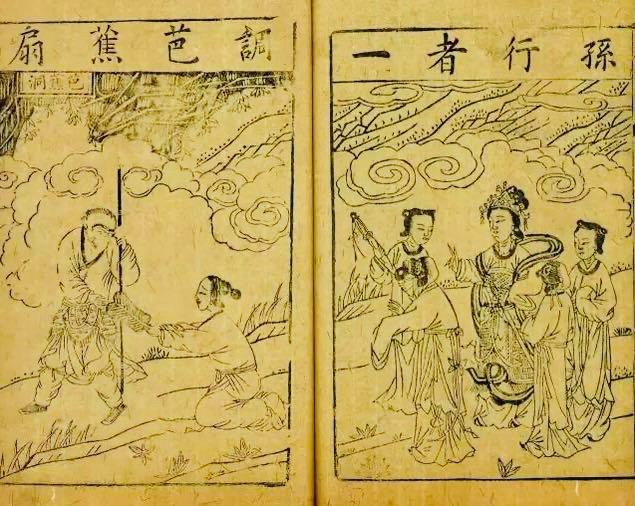 孫行者一
調芭蕉扇
芭蕉洞